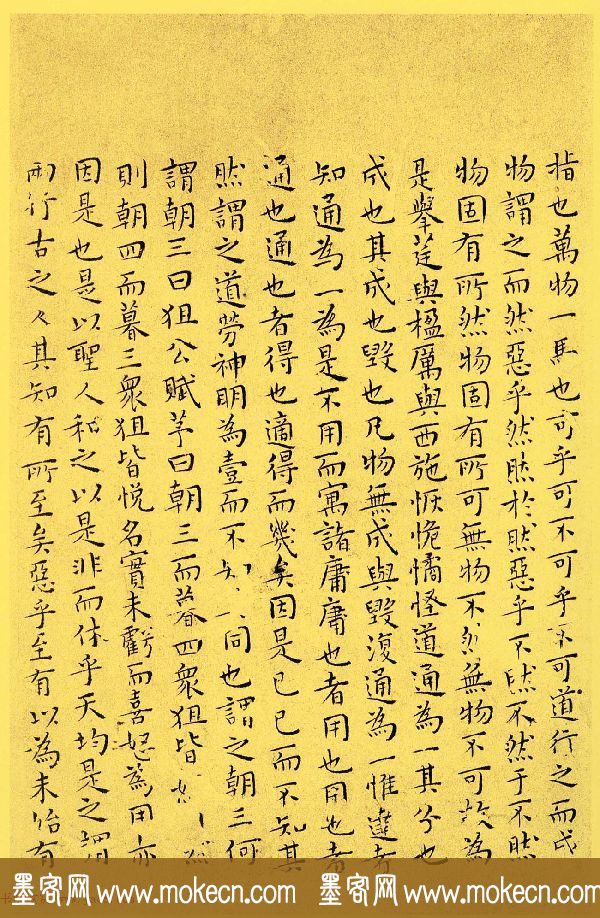 指也萬物一馬也可乎可不可乎不可道行之而成
物謂之而然惡乎然然於然惡乎不然不然于不然
物固有所然物固有所可無物不然無物不可故為
是舉莛與楹厲與西施恢恑憰怪道通為一其分也
成也其成也毀也凡物無成與毀復通為一惟達者
知通為一為是不用而寓諸庸庸也者用也用也者
通也通也者得也適得而幾矣因是已已而不知其
然謂之道勞神明為壹而不知同也謂之朝三何
謂朝三曰狙公賦芧曰朝三而暮四衆狙皆
則朝四而暮三衆狙皆悅名實未虧而喜怒為用亦
因是也是以聖人和之以是非而休乎天均是之謂
兩行古之々其知有所至矣惡乎至有以為未始有
墨客网 www.mokecn.com 墨客网 www.mokecn.com